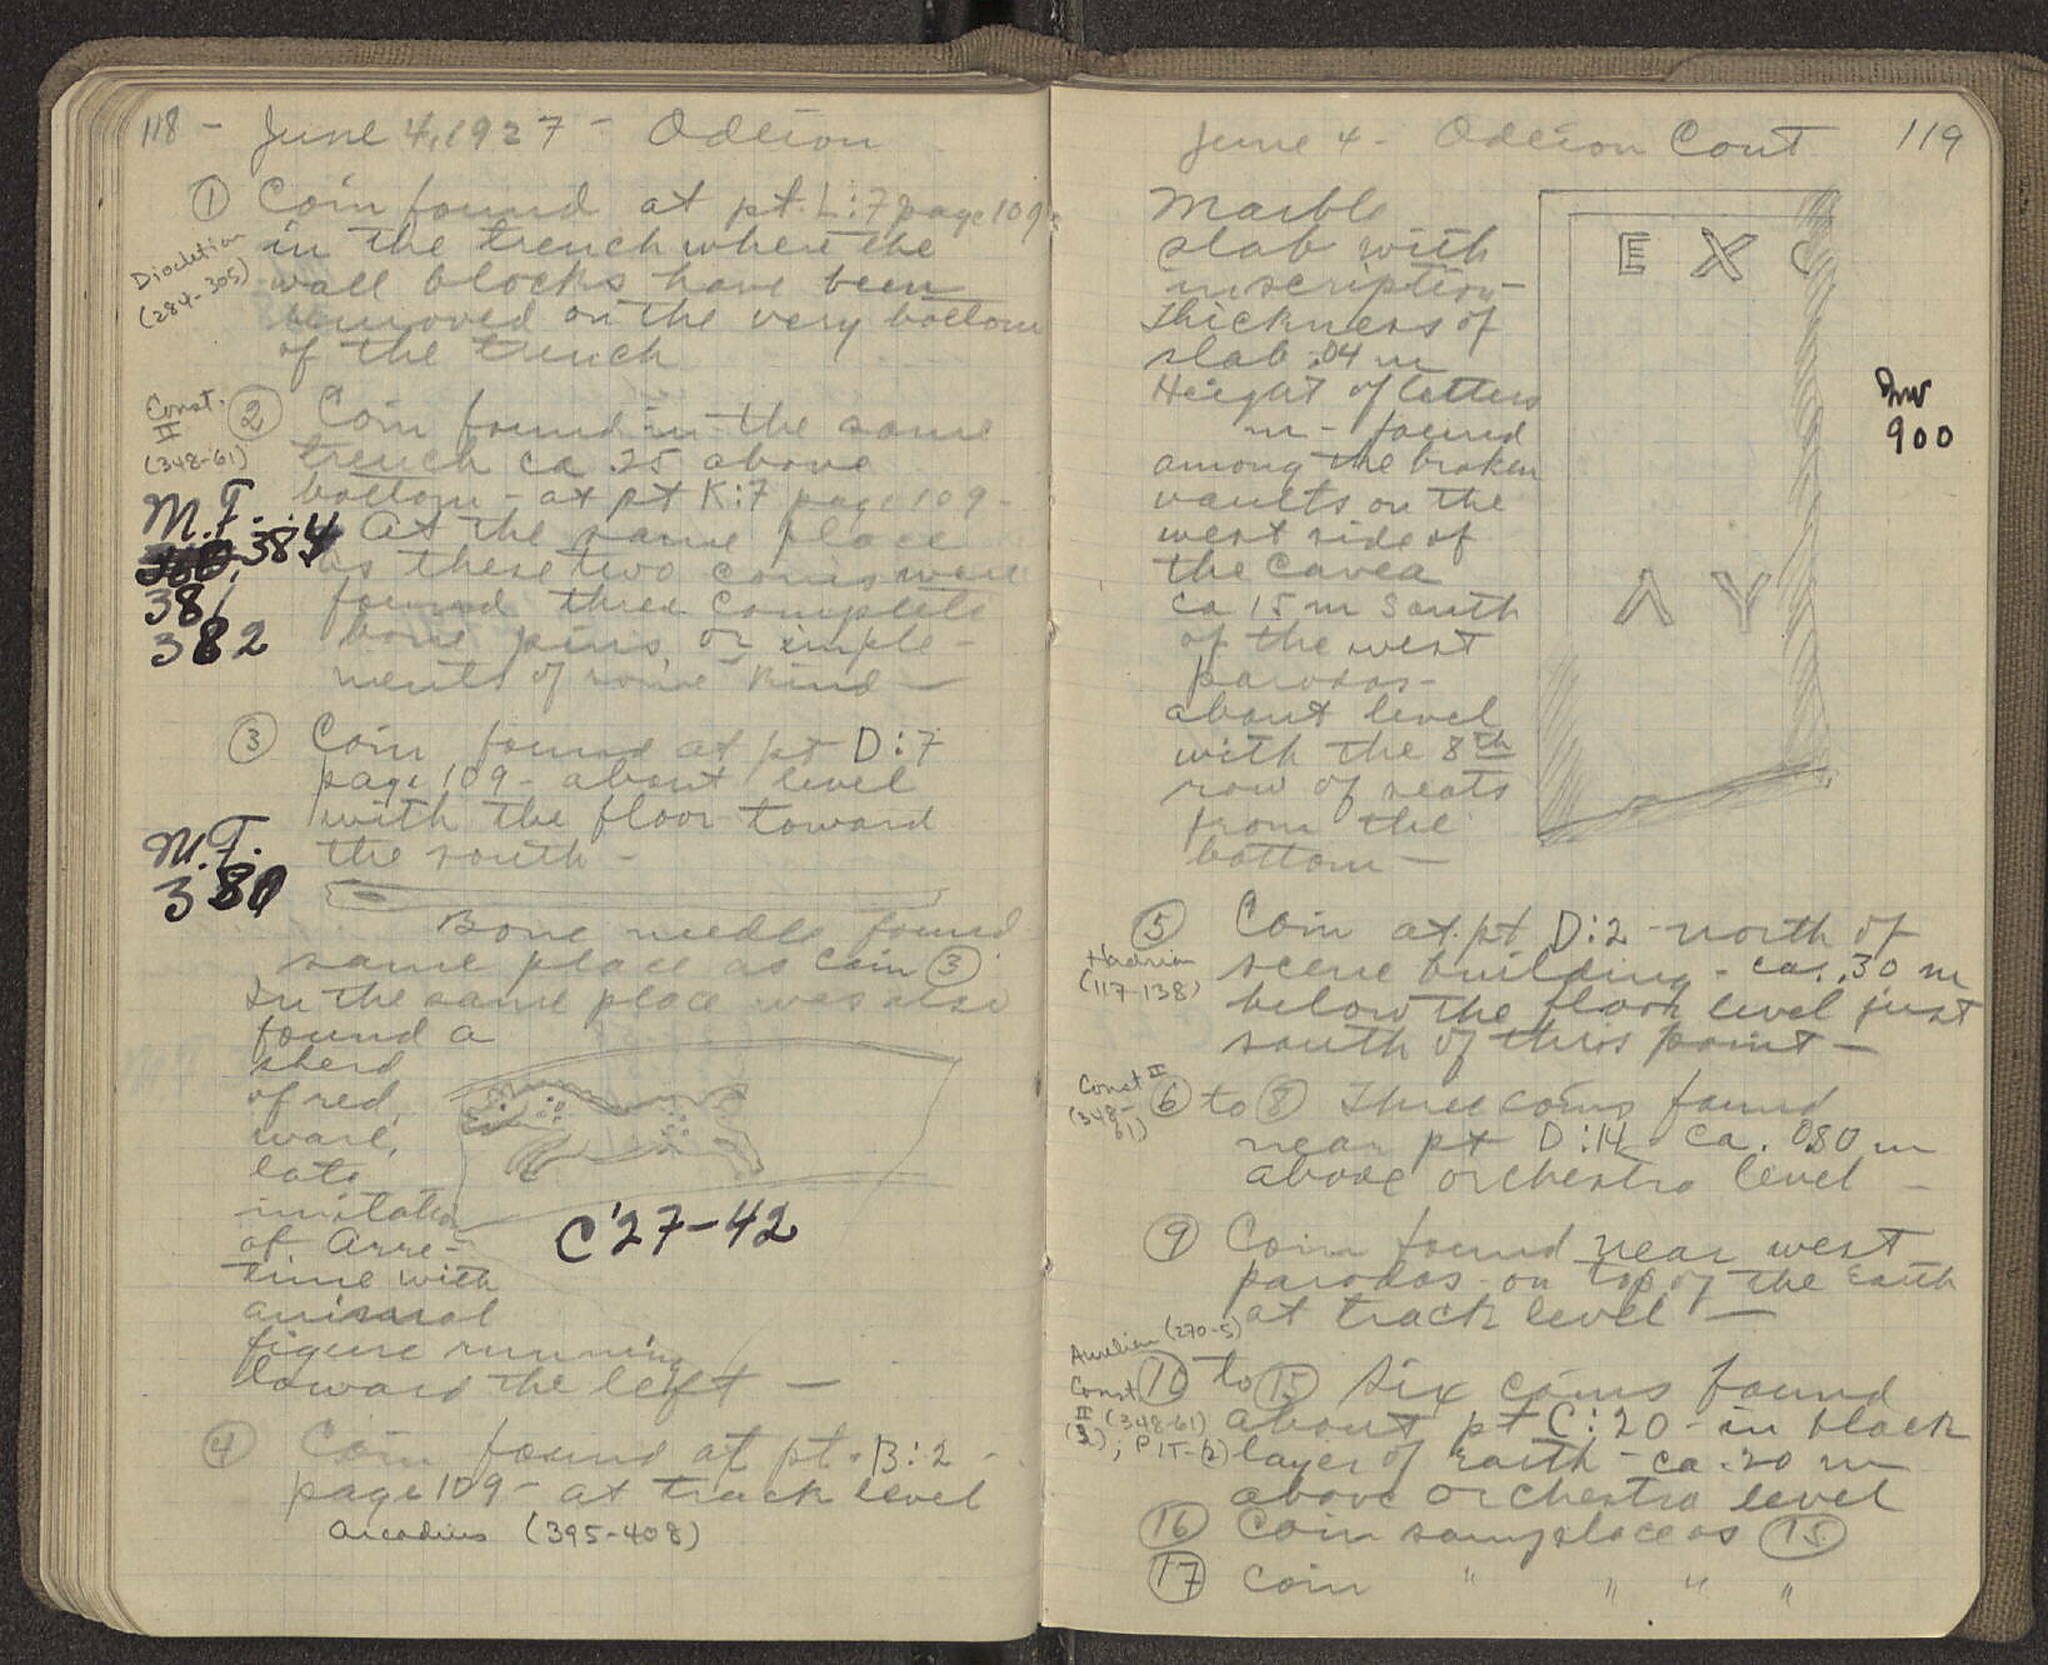 118 - June 4, 1927 - Odeion
① Coin found at pt. L:7 page 109
Diocletian
(284-305)
in the trench where the
wall blocks have been
removed on the very bottom
of the trench
Const.
II
(348-61)
② Coin found in the same
trench ca .25 above
bottom - at pt K:7 page 109 -
M.F.
384
381
382
At the same place
as these two coins were
found three complete
bone pins, or imple-
ments of some kind —
③ Coin found at pt D:7
page 109 - about level
with the floor toward
the south -
M.F.
380
Bone needle found
same place as coin ③
In the same place was also
found a
sherd
of red,
ware,
late
imitation
of Arre-
tine with
animal
figure running
toward the left —
C'27-42
④ Coin found at pt. B:2 -
page 109 - at track level
Arcadius (395-408)
June 4 - Odeion Cont 119
Marble
slab with
inscription -
Thickness of
slab .04 m
Height of letters
m - found
among the broken
vaults on the
west side of
the Cavea
ca 15 m South
of the west
parodos -
about level
with the 8th
row of seats
from the
bottom —
E X C
Λ Y
Inv
900
⑤ Coin at pt D:2 - north of
Hadrian
(117-138)
scene building - ca. .30 m
below the floor level just
south of this point —
Const II
(348-
61)
⑥ to ⑧ Three coins found
near pt D:14 ca. 0.80 m
above orchestra level -
⑨ Coin found near west
parodos - on top of the Earth
at track level —
Aurelian (270-5)
Const
II (348-61)
(3); P 1T-(2)
⑩ to ⑮ Six coins found
about pt C:20 - in black
layer of Earth - ca .20 m
above orchestra level
⑯ Coin same place as ⑮
⑰ Coin " " " "